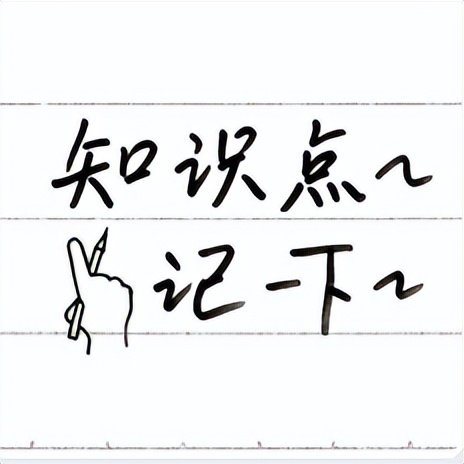 知识点~
记一下~